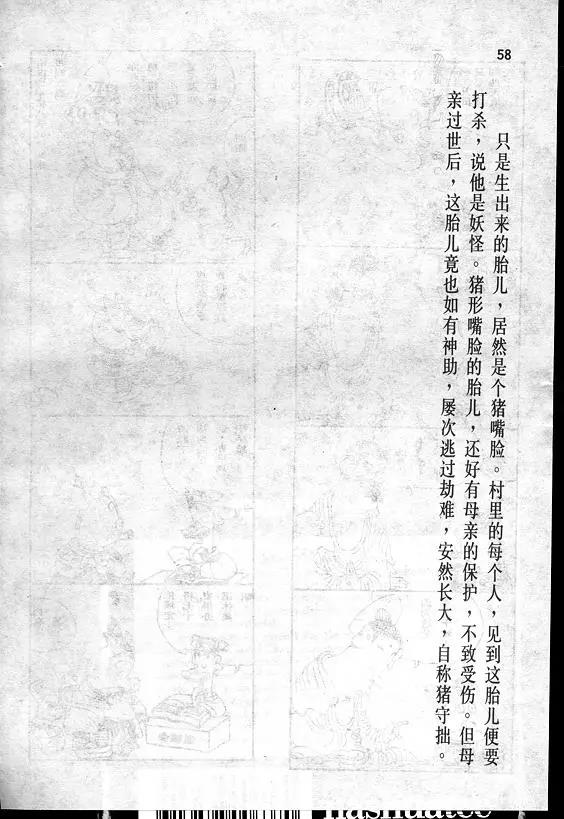 58
只是生出来的胎儿，居然是个猪嘴脸。村里的每个人，见到这胎儿便要
打杀，说他是妖怪。猪形嘴脸的胎儿，还好有母亲的保护，不致受伤。但母
亲过世后，这胎儿竟也如有神助，屡次逃过劫难，安然长大，自称猪守拙。